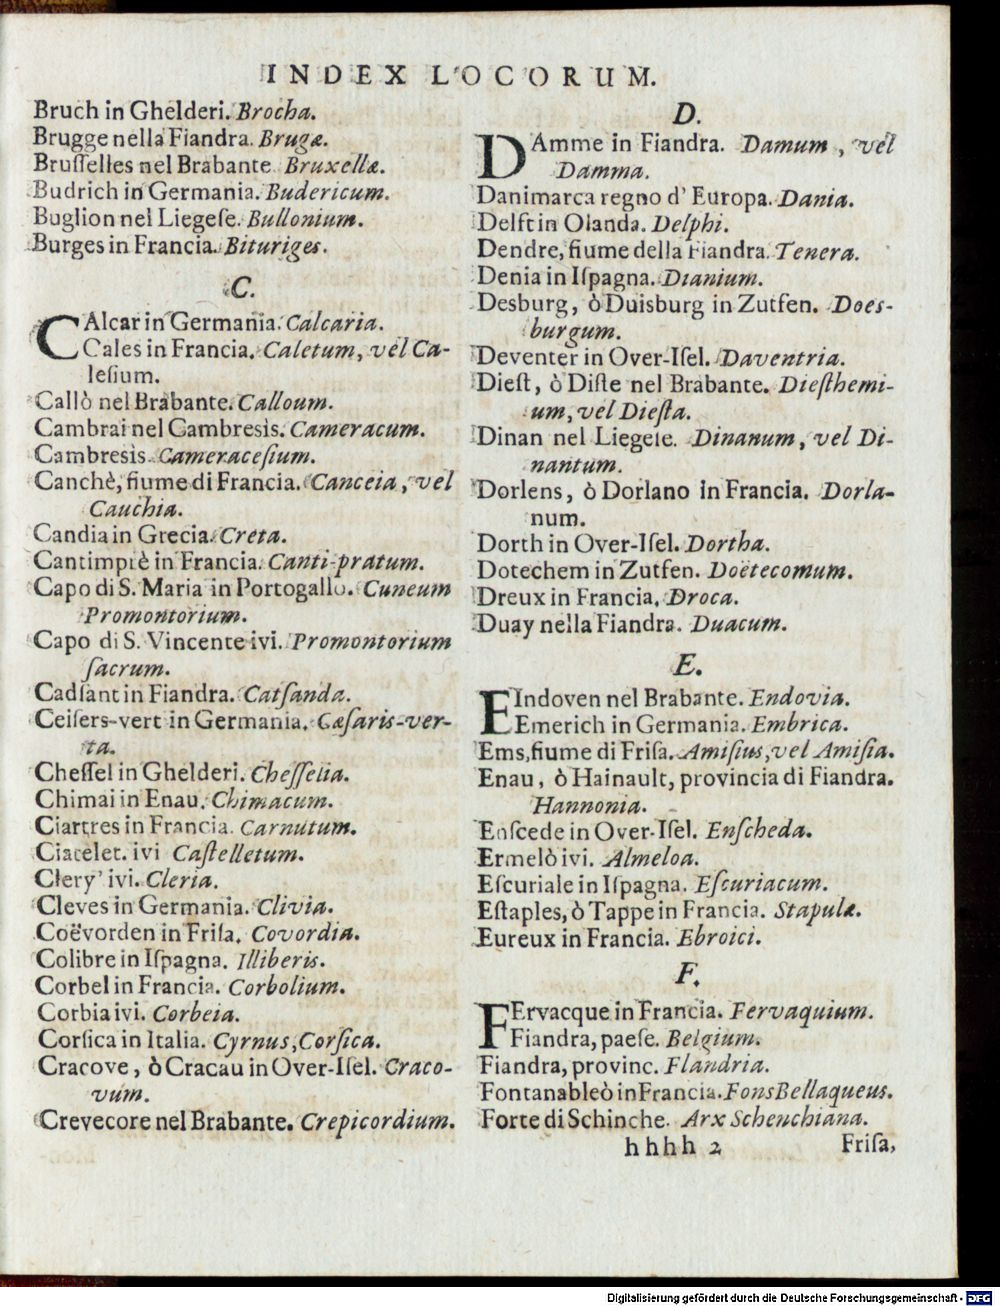 INDEX LOCORUM.
Bruch in Ghelderi. Brocha.
Brugge nella Fiandra. Brugæ.
Bruſſelles nel Brabante. Bruxellæ.
Budrich in Germania. Budericum.
Buglion nel Liegeſe. Bullonium.
Burges in Francia. Bituriges.
C.
CAlcar in Germania. Calcaria.
Cales in Francia. Caletum, vel Ca-
leſium.
Callò nel Brabante. Calloum.
Cambrai nel Cambresis. Cameracum.
Cambresis. Cameraceſium.
Canchè, fiume di Francia. Canceia, vel
Cauchia.
Candia in Grecia. Creta.
Cantimprè in Francia. Canti-pratum.
Capo di S. Maria in Portogallo. Cuneum
Promontorium.
Capo di S. Vincente ivi. Promontorium
ſacrum.
Cadſant in Fiandra. Catſanda.
Ceiſers-vert in Germania. Cæſaris-ver-
ta.
Cheſſel in Ghelderi. Cheſſelia.
Chimai in Enau. Chimacum.
Ciartres in Francia. Carnutum.
Ciatelet. ivi Caſtelletum.
Clery' ivi. Cleria.
Cleves in Germania. Clivia.
Coëvorden in Friſa. Covordia.
Colibre in Iſpagna. Illiberis.
Corbel in Francia. Corbolium.
Corbia ivi. Corbeia.
Corſica in Italia. Cyrnus, Corſica.
Cracove, ò Cracau in Over-Iſel. Craco-
vum.
Crevecore nel Brabante. Crepicordium.
D.
DAmme in Fiandra. Damum, vel
Damma.
Danimarca regno d' Europa. Dania.
Delft in Olanda. Delphi.
Dendre, fiume della Fiandra. Tenera.
Denia in Iſpagna. Dianium.
Desburg, ò Duisburg in Zutfen. Does-
burgum.
Deventer in Over-Iſel. Daventria.
Dieſt, ò Diſte nel Brabante. Dieſthemi-
um, vel Dieſta.
Dinan nel Liegeſe. Dinanum, vel Di-
nantum.
Dorlens, ò Dorlano in Francia. Dorla-
num.
Dorth in Over-Iſel. Dortha.
Dotechem in Zutfen. Doëtecomum.
Dreux in Francia. Droca.
Duay nella Fiandra. Duacum.
E.
EIndoven nel Brabante. Endovia.
Emerich in Germania. Embrica.
Ems, fiume di Friſa. Amiſius, vel Amiſia.
Enau, ò Hainault, provincia di Fiandra.
Hannonia.
Enſcede in Over-Iſel. Enſcheda.
Ermelò ivi. Almeloa.
Eſcuriale in Iſpagna. Eſcuriacum.
Eſtaples, ò Tappe in Francia. Stapulæ.
Eureux in Francia. Ebroici.
F.
FErvacque in Francia. Fervaquium.
Fiandra, paeſe. Belgium.
Fiandra, provinc. Flandria.
Fontanableò in Francia. Fons Bellaqueus.
Forte di Schinche. Arx Schenchiana.
hhhh 2 Friſa,
Digitalisierung gefördert durch die Deutsche Forschungsgemeinschaft - DFG